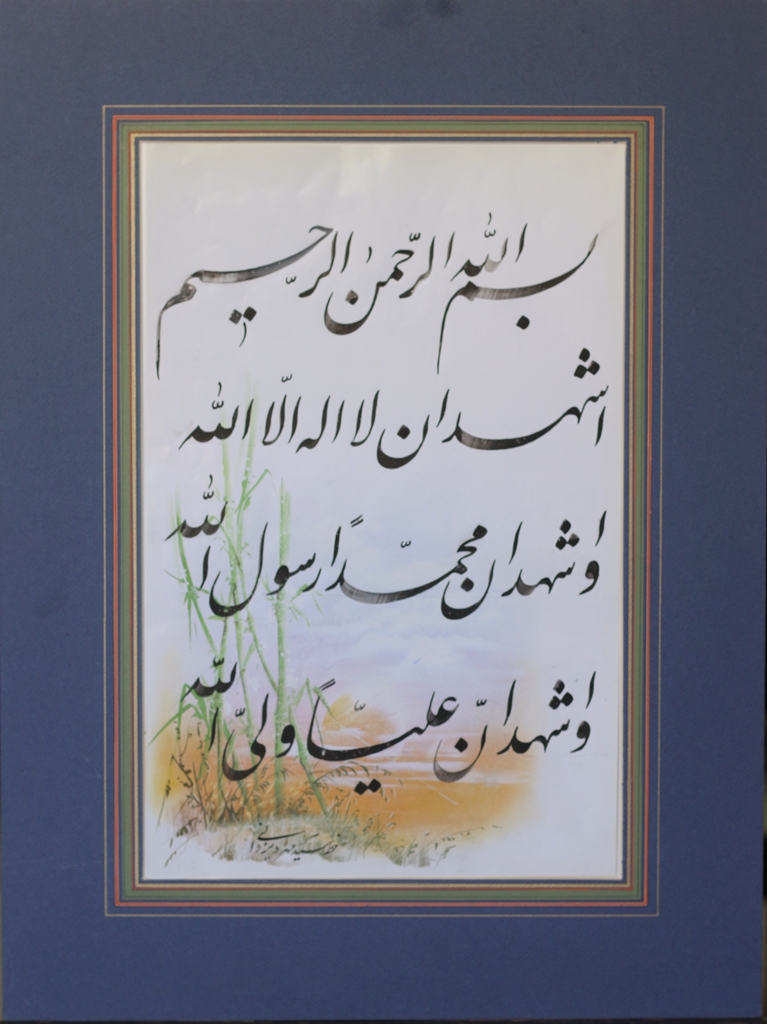 بسم الله الرّحمن الرّحیم
اشهد ان لا اله الّا الله
و اشهد ان محمّداً رسول الله
و اشهد انّ علیّاً ولیّ الله
خط سید